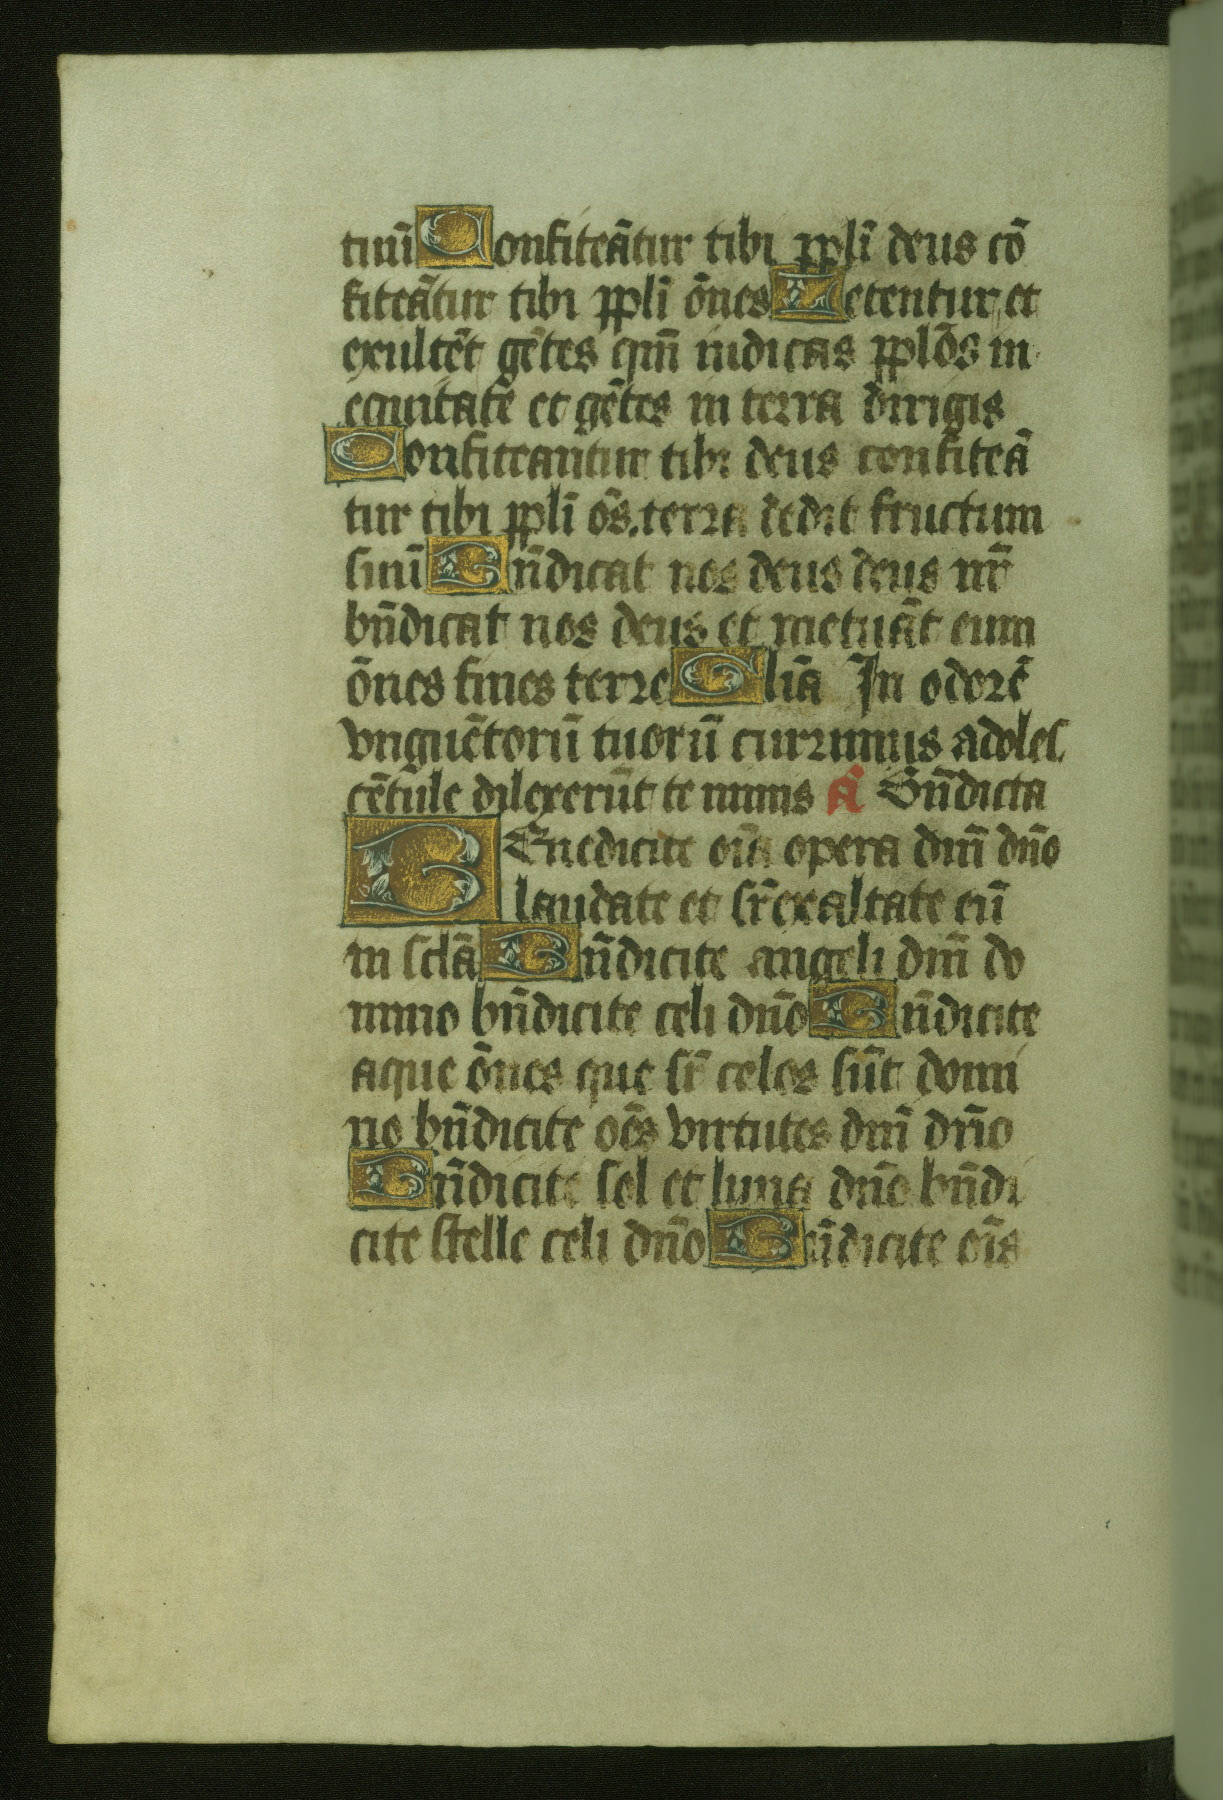 tuū Confiteātur tibi ppli deus cō
fiteātur tibi pplī ōnes Letentur et
exultēt gētes qm̄ iudicas pplōs in
equitatē et gētes in terra dirigis
Confiteantur tibi deus confiteā
tur tibi pplī ōs. terra dedit fructum
suū Bn̄dicat nos deus deus nr̄
bn̄dicat nos deus et metuāt eum
ōnes fines terre Glīa In odorē
vnguētorū tuorū currimus adoles
cētule dilexerūt te nimis ā Bn̄dicta
BEnedicite oīa opera dn̄i dn̄o
laudate et sr̄exaltate eū
in sclā Bn̄dicite angeli dn̄i do
mino bn̄dicite celi dn̄o Bn̄dicite
aque ōnes que sr̄ celos sūt domi
no bn̄dicite oēs virtutes dn̄i dn̄o
Bn̄dicite sol et luna dn̄o bn̄di
cite stelle celi dn̄o Bn̄dicite oīs